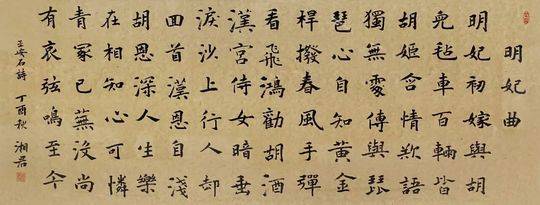 明妃曲
明妃初嫁與胡
兒氈車百輛皆
胡姬含情欲語
獨無處傳與琵
琶心自知黃金
桿撥春風手彈
看飛鴻勸胡酒
漢宮侍女暗垂
淚沙上行人却
回首漢恩自淺
胡恩深人生樂
在相知心可憐
青冢已蕪沒尚
有哀弦鳴至今
王安石詩 丁酉秋 湘